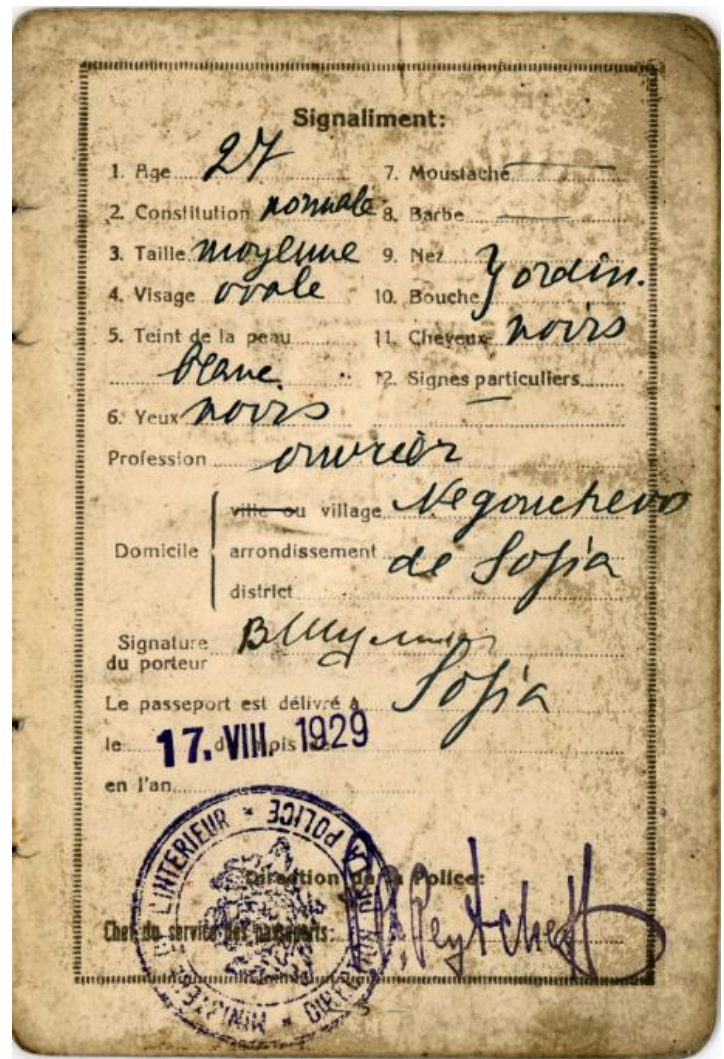 Signaliment:
1. Age 27
2. Constitution normale
3. Taille moyenne
4. Visage ovale
5. Teint de la peau
blanc.
6. Yeux noirs
7. Moustache —
8. Barbe —
9. Nez
10. Bouche } ordin.
11. Cheveux noirs
12. Signes particuliers
—
Profession ouvrier
Domicile
ville ou village Negouchevo
arrondissement de Sofia
district
Signature
du porteur
Le passeport est délivré à Sofia
le 17. VIII. 1929
en l'an
Direction de la Police:
Chef du service des passeports: Peytcheff
MINISTÈRE DE L'INTERIEUR * DIRECTION DE LA POLICE *
5